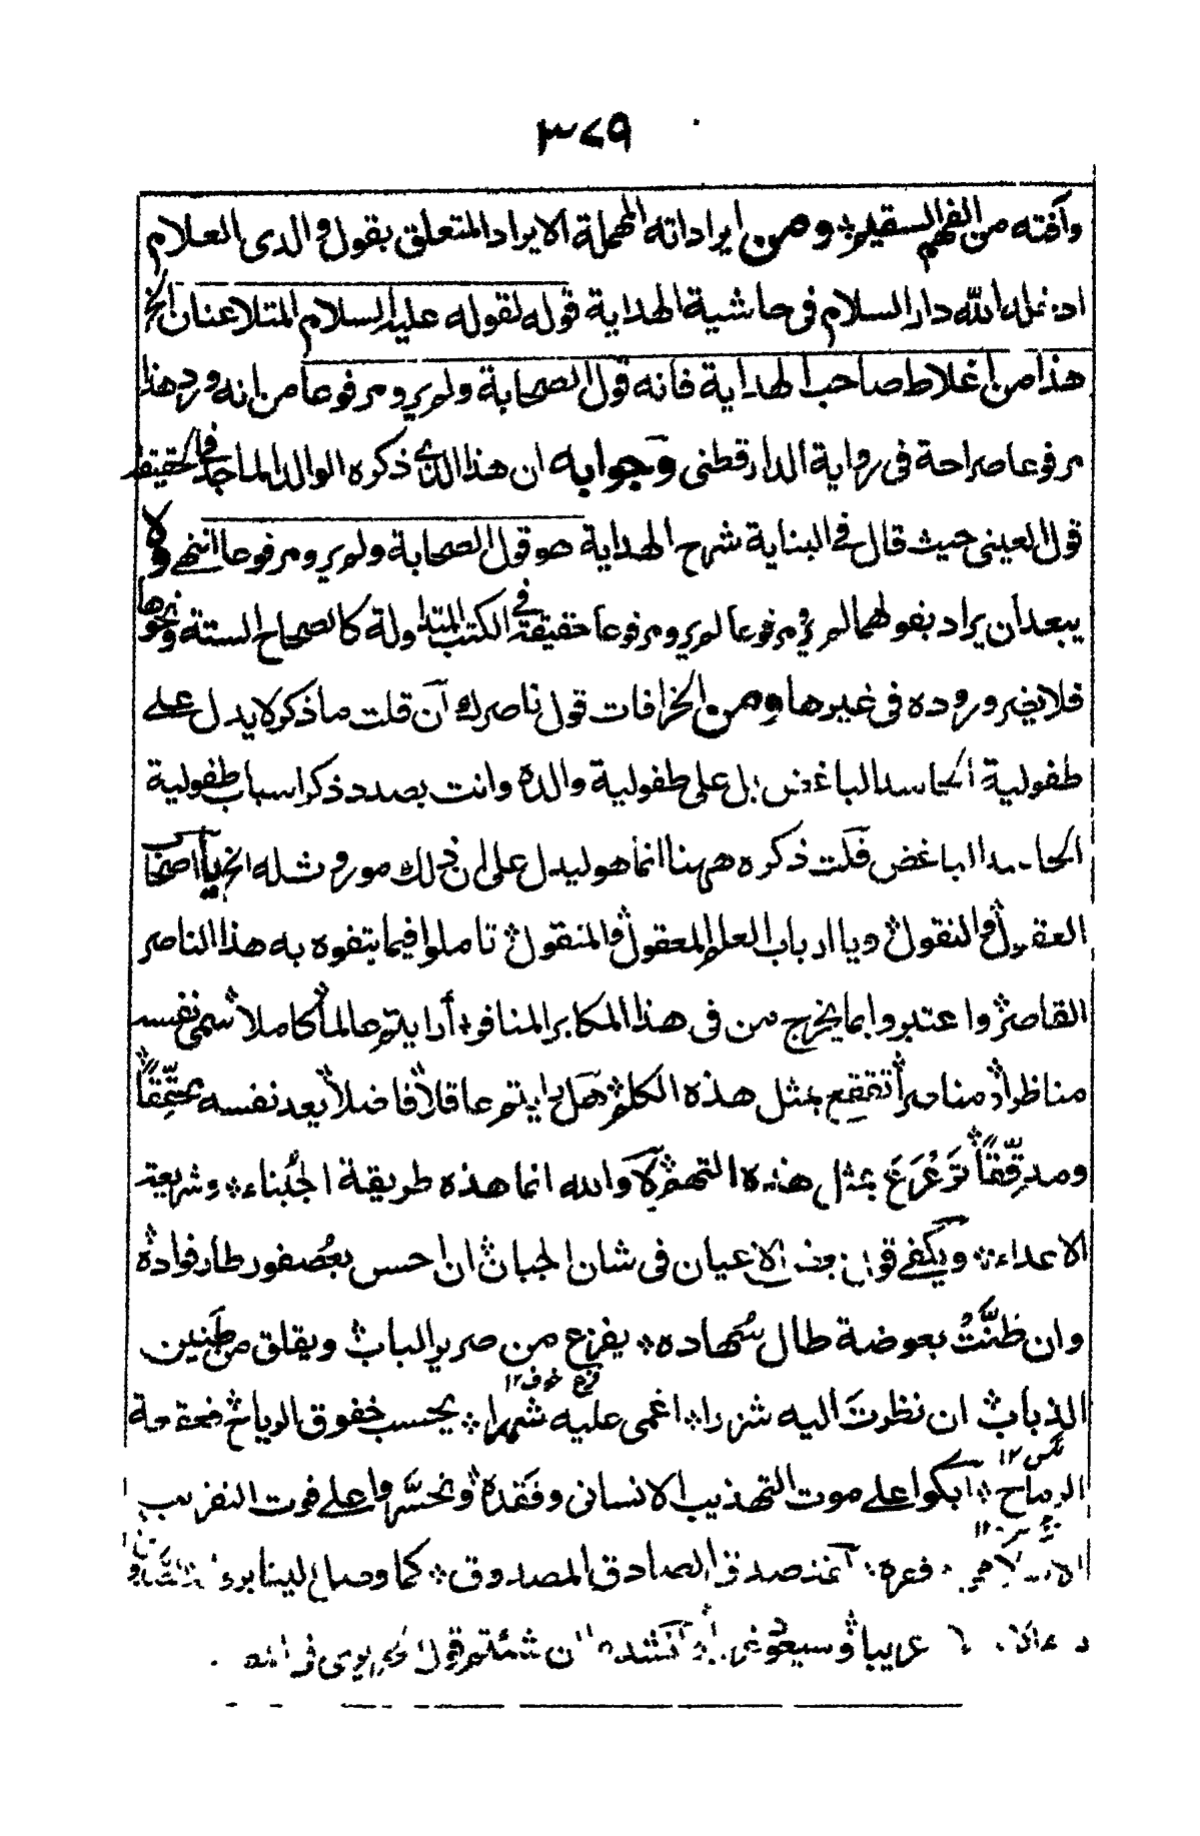 ٣٧٩
وآفته من الفهم السقيم ۞ ومن ايراداته المهملة الايراد المتعلق بقول والدى العلام
ادخله الله دار السلام فى حاشية الهداية قوله لقوله عليه السلام المتلاعنان الخ
هذا من اغلاط صاحب الهداية فانه قول الصحابة ولم يرو مرفوعا من انه ورد هذا
مرفوعا صراحة فى رواية الدارقطنى وجوابه ان هذا الذى ذكره الوالد الماجد فى الحقيقة
قول العينى حيث قال فى البناية شرح الهداية هو قول الصحابة ولم يرو مرفوعا انتهى ولا
يبعد ان يراد بقولهما لم يرو مرفوعا لم يرو مرفوعا حقيقة فى الكتب المتداولة كالصحاح الستة ونحوها
فلا يضر وروده فى غيرها ومن الخرافات قول ناصرك آن قلت ما ذكر لا يدل على
طفولية الحاسد الباغض بل على طفولية والده وانت بصدد ذكر اسباب طفولية
الحاسد الباغض قلت ذكره ههنا انما هو ليدل على ان ذلك موروث له الخ يا اصحاب
العقول والنقول ويا ارباب العلم المعقول والمنقول تاملوا فيما يتفوه به هذا الناصر
القاصر واعتبروا بما يخرج من فى هذا المكابر المنافر أرايتم عالما كاملا سمى نفسه
مناظرا ومناصرا تقعقع بمثل هذه الكلم هل رايتم عاقلا فاضلا يعد نفسه محققا
ومدقِّقًا تَرَعْرَعَ بمثل هذه التهم كلا والله انما هذه طريقة الجُبناء ۞ وشريعة
الاعداء ۞ ويكفى قول بعض الاعيان فى شان الجبان ان احس بعُصفور طار فواده
وان ظنَّتُ بعوضة طال سُهاده ۞ يفزع من صرير الباب ويقلق من طَنين
فزع خوف ١٢
الذباب ان نظرتَ اليه شزرا ۞ اغمى عليه شهرا ۞ يحسب خفوق الرياح قعقعة
الرماح ۞ ابكوا على موت التهذيب الانسانى وفَقَده وتحسَّروا على فوت
صدق الصادق المصدوق ۞ كما
غريبا وسيعود ان شئتم قول